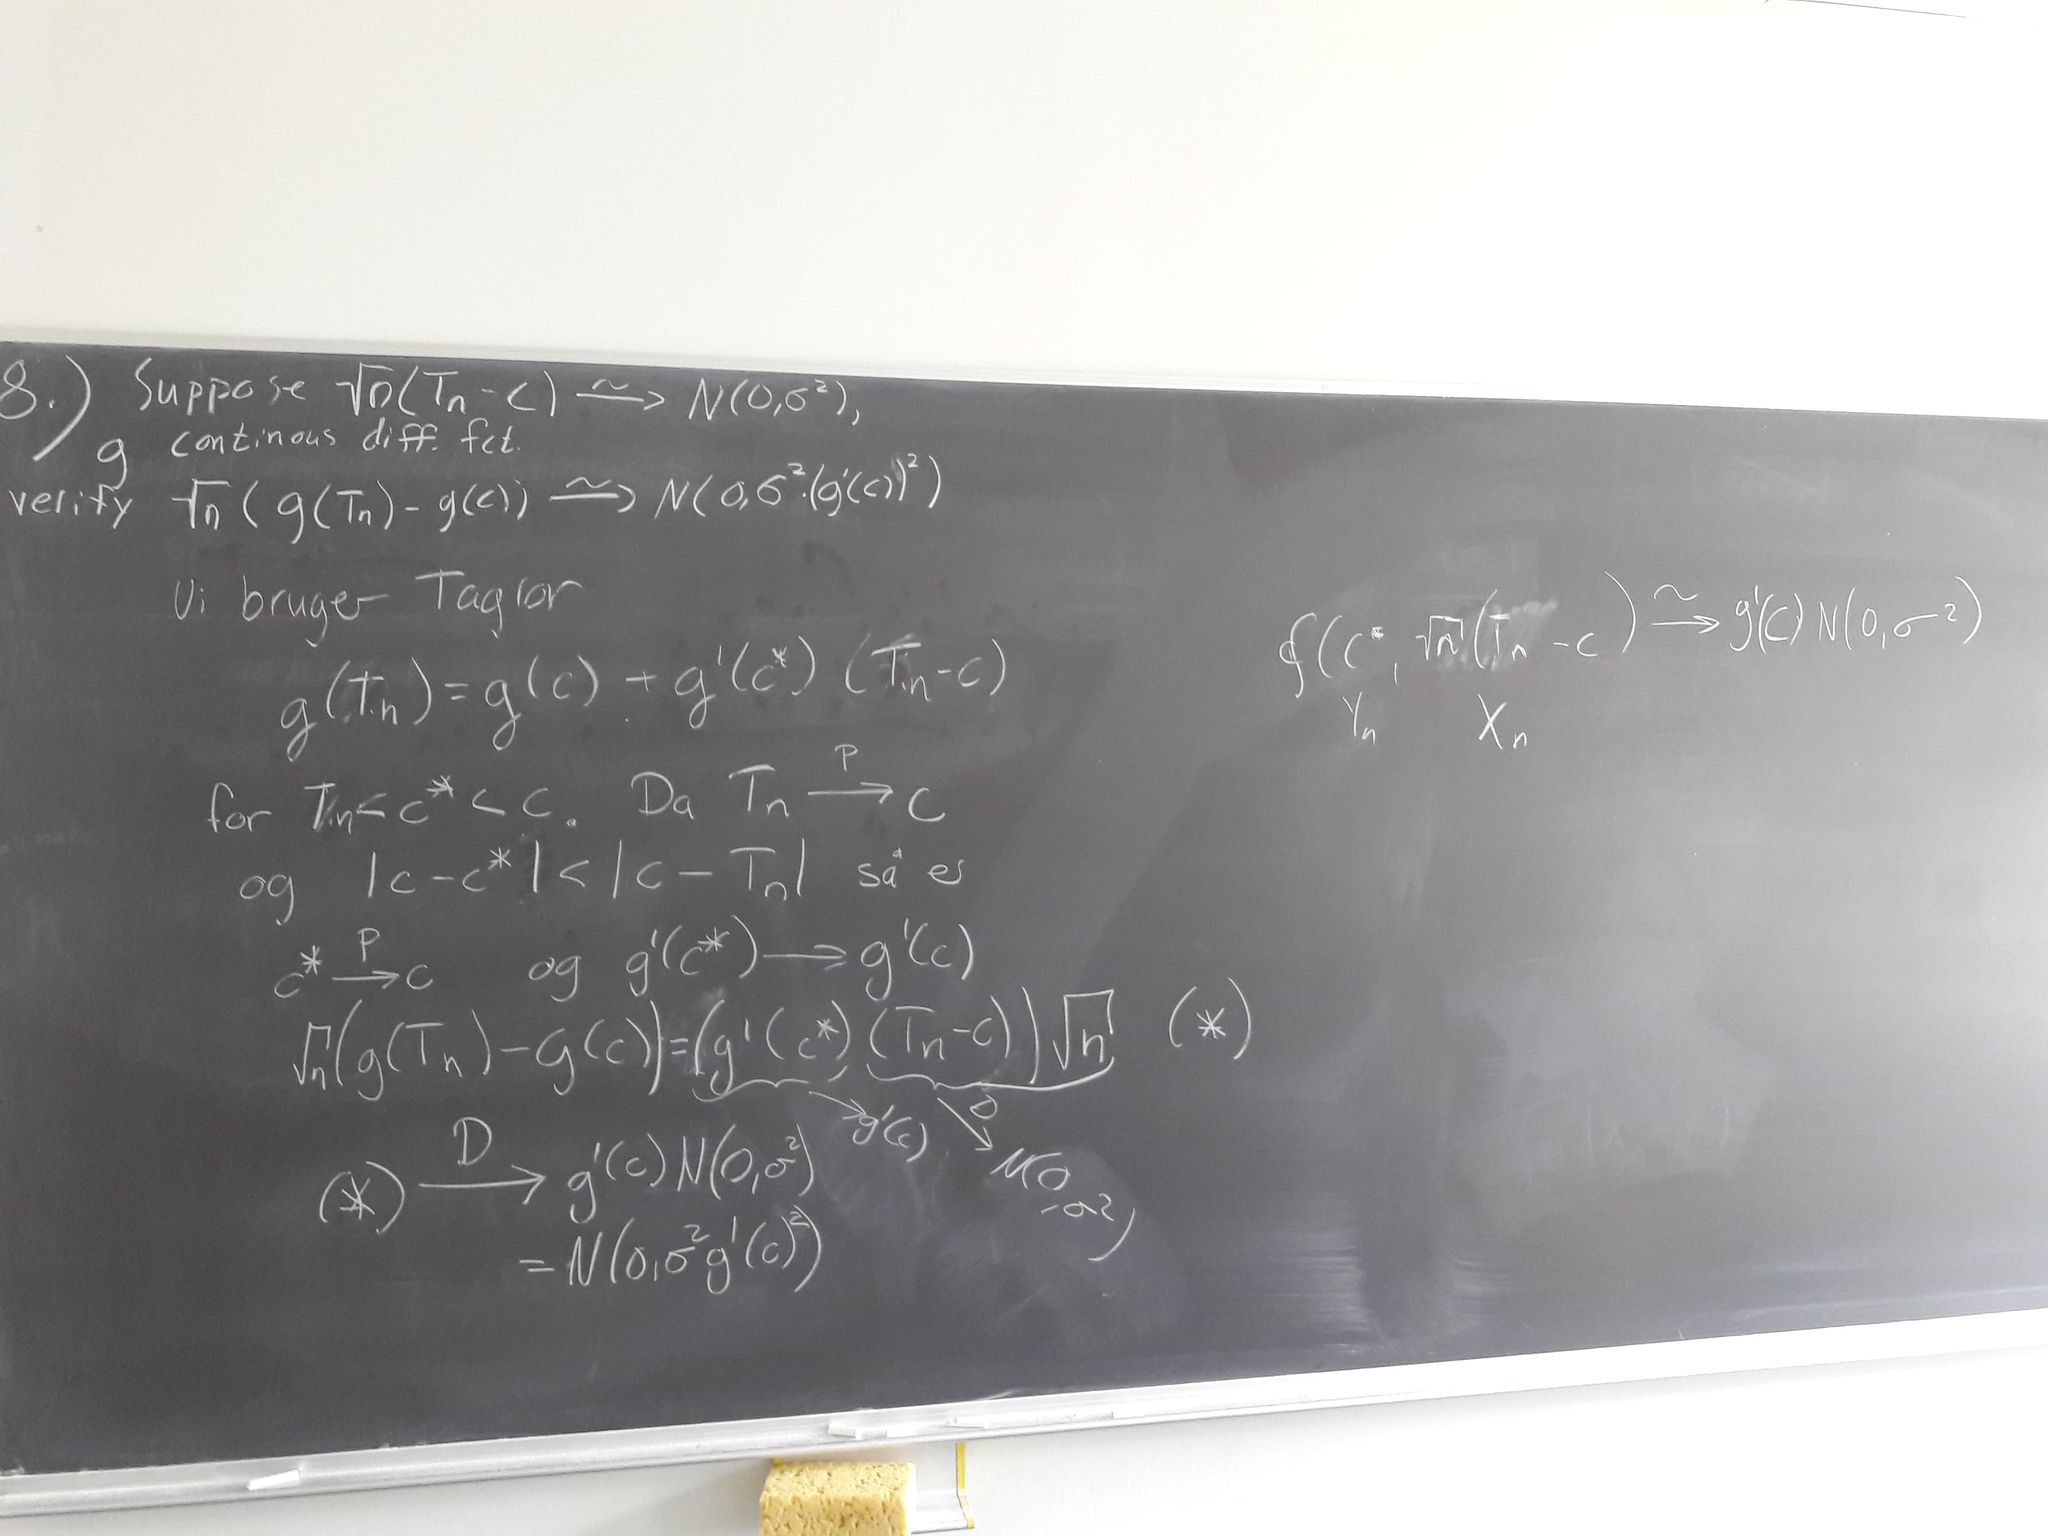 8.) Suppose √n(Tn-c) ⥲ N(0,σ²),
g continous diff. fct.
verify √n(g(Tn)-g(c)) ⥲ N(0,σ²·(g'(c))²)
Vi bruger Taylor
g(Tn)=g(c)+g'(c*)(Tn-c)
for Tn<c*<c. Da Tn →P c
og |c-c*|<|c-Tn| så er
c* →P c og g'(c*)→g'(c)
√n(g(Tn)-g(c))=(g'(c*)(Tn-c))√n (*)
→g'(c) →D N(0,σ²)
(*) →D g'(c)N(0,σ²)
=N(0,σ²g'(c)²)
f(c*,√n(Tn-c) ⥲ g'(c)N(0,σ²)
Yn Xn